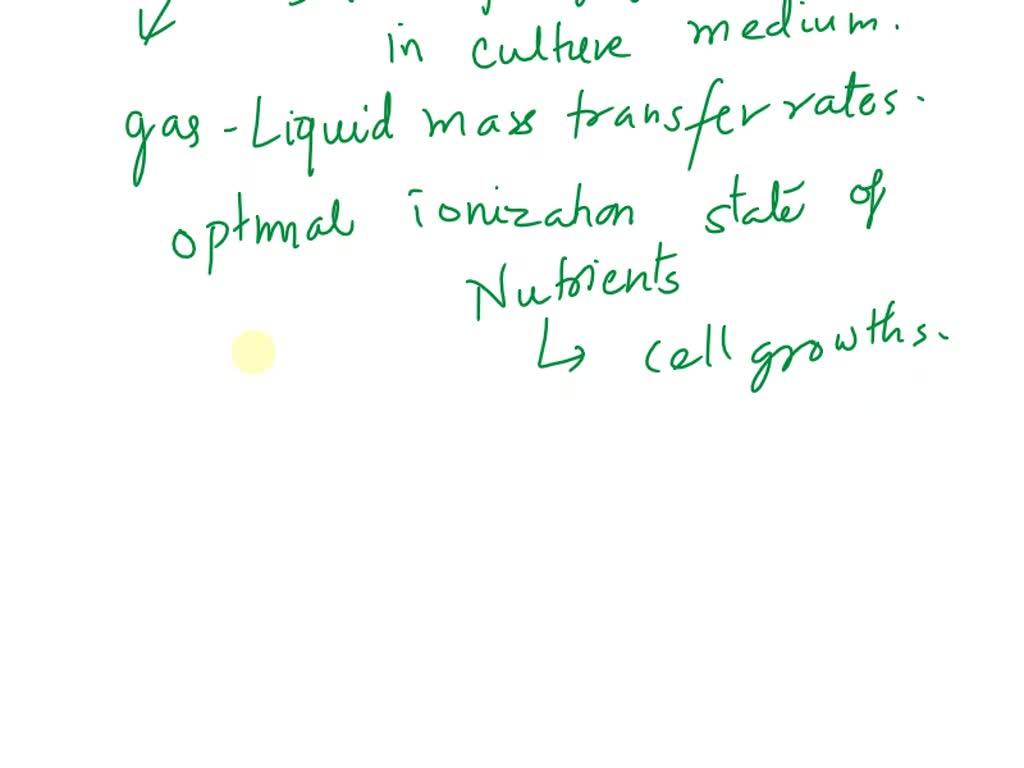 in culture medium.
gas-Liquid mass transfer rates.
optimal ionization state of
Nutrients
↳ cell growths.